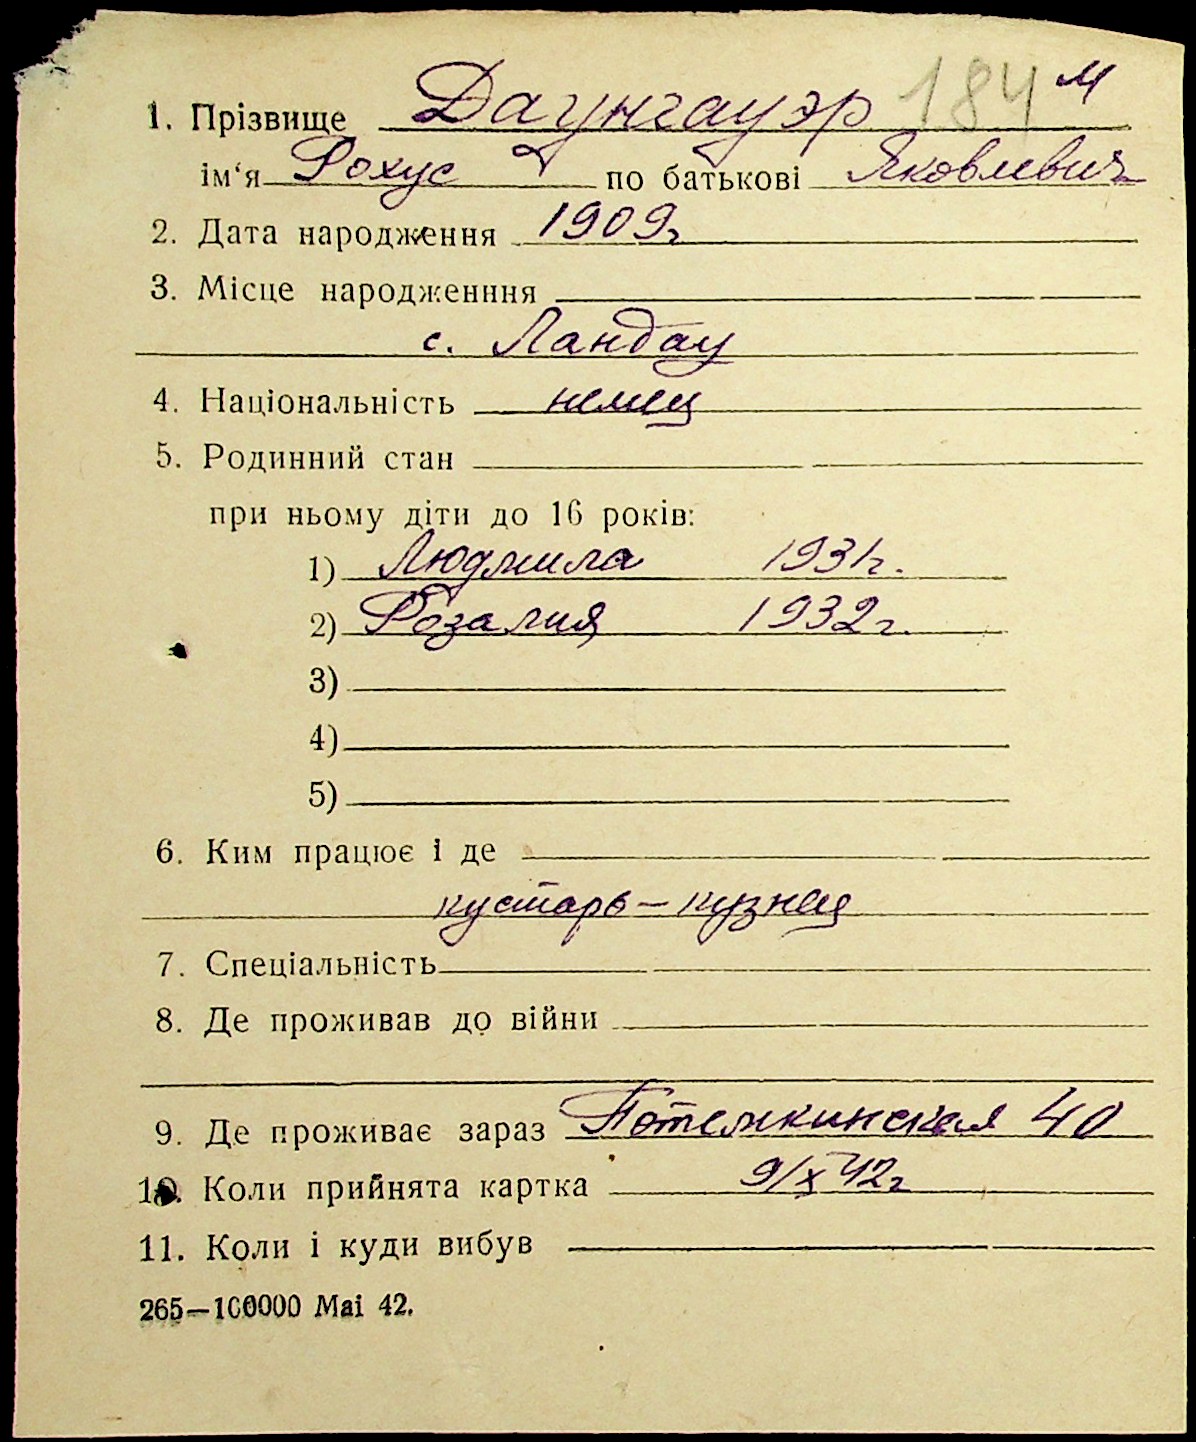 1. Прізвище Даунгауэр 184 м
ім‘я Рохус по батькові Яковлевич
2. Дата народження 1909г
3. Місце народженння
с. Ландау
4. Національність немец
5. Родинний стан
при ньому діти до 16 років:
1) Людмила 1931г.
2) Розалия 1932г.
3)
4)
5)
6. Ким працює і де
кустарь – кузнец
7. Спеціальність
8. Де проживав до війни
9. Де проживає зараз Потемкинская 40
10. Коли прийнята картка 9/X 42г
11. Коли і куди вибув
265—100000 Mai 42.